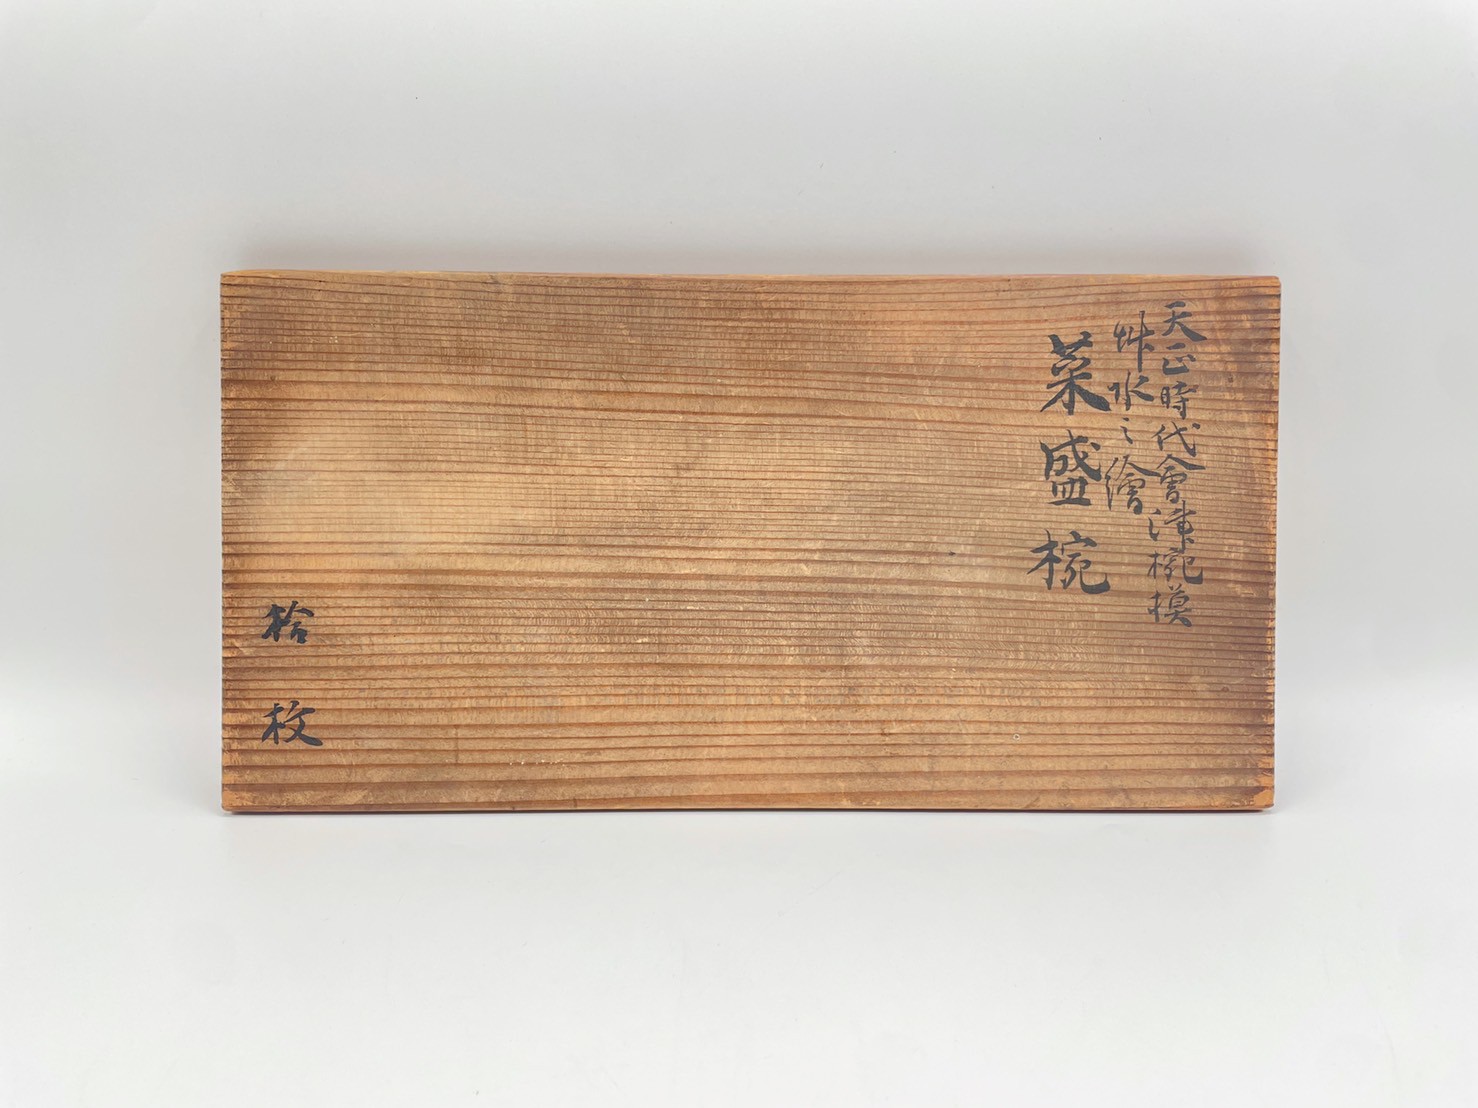 天正時代會津椀摸
艸水之繪
菜盛椀
拾枚